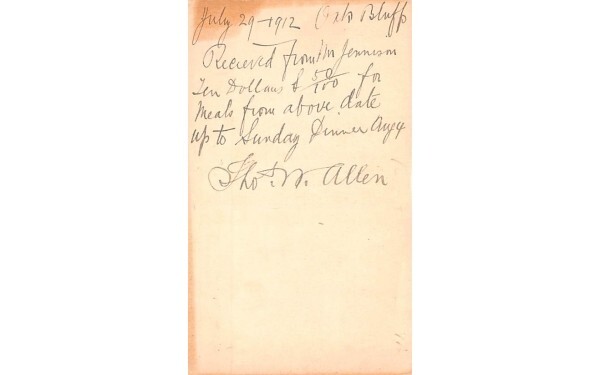 July 29-1912 Oak Bluffs
Recieved from Mr Jennison
Ten Dollars & 50/100 for
Meals from above date
up to Sunday Dinner Aug 4
Thos. W. Allen